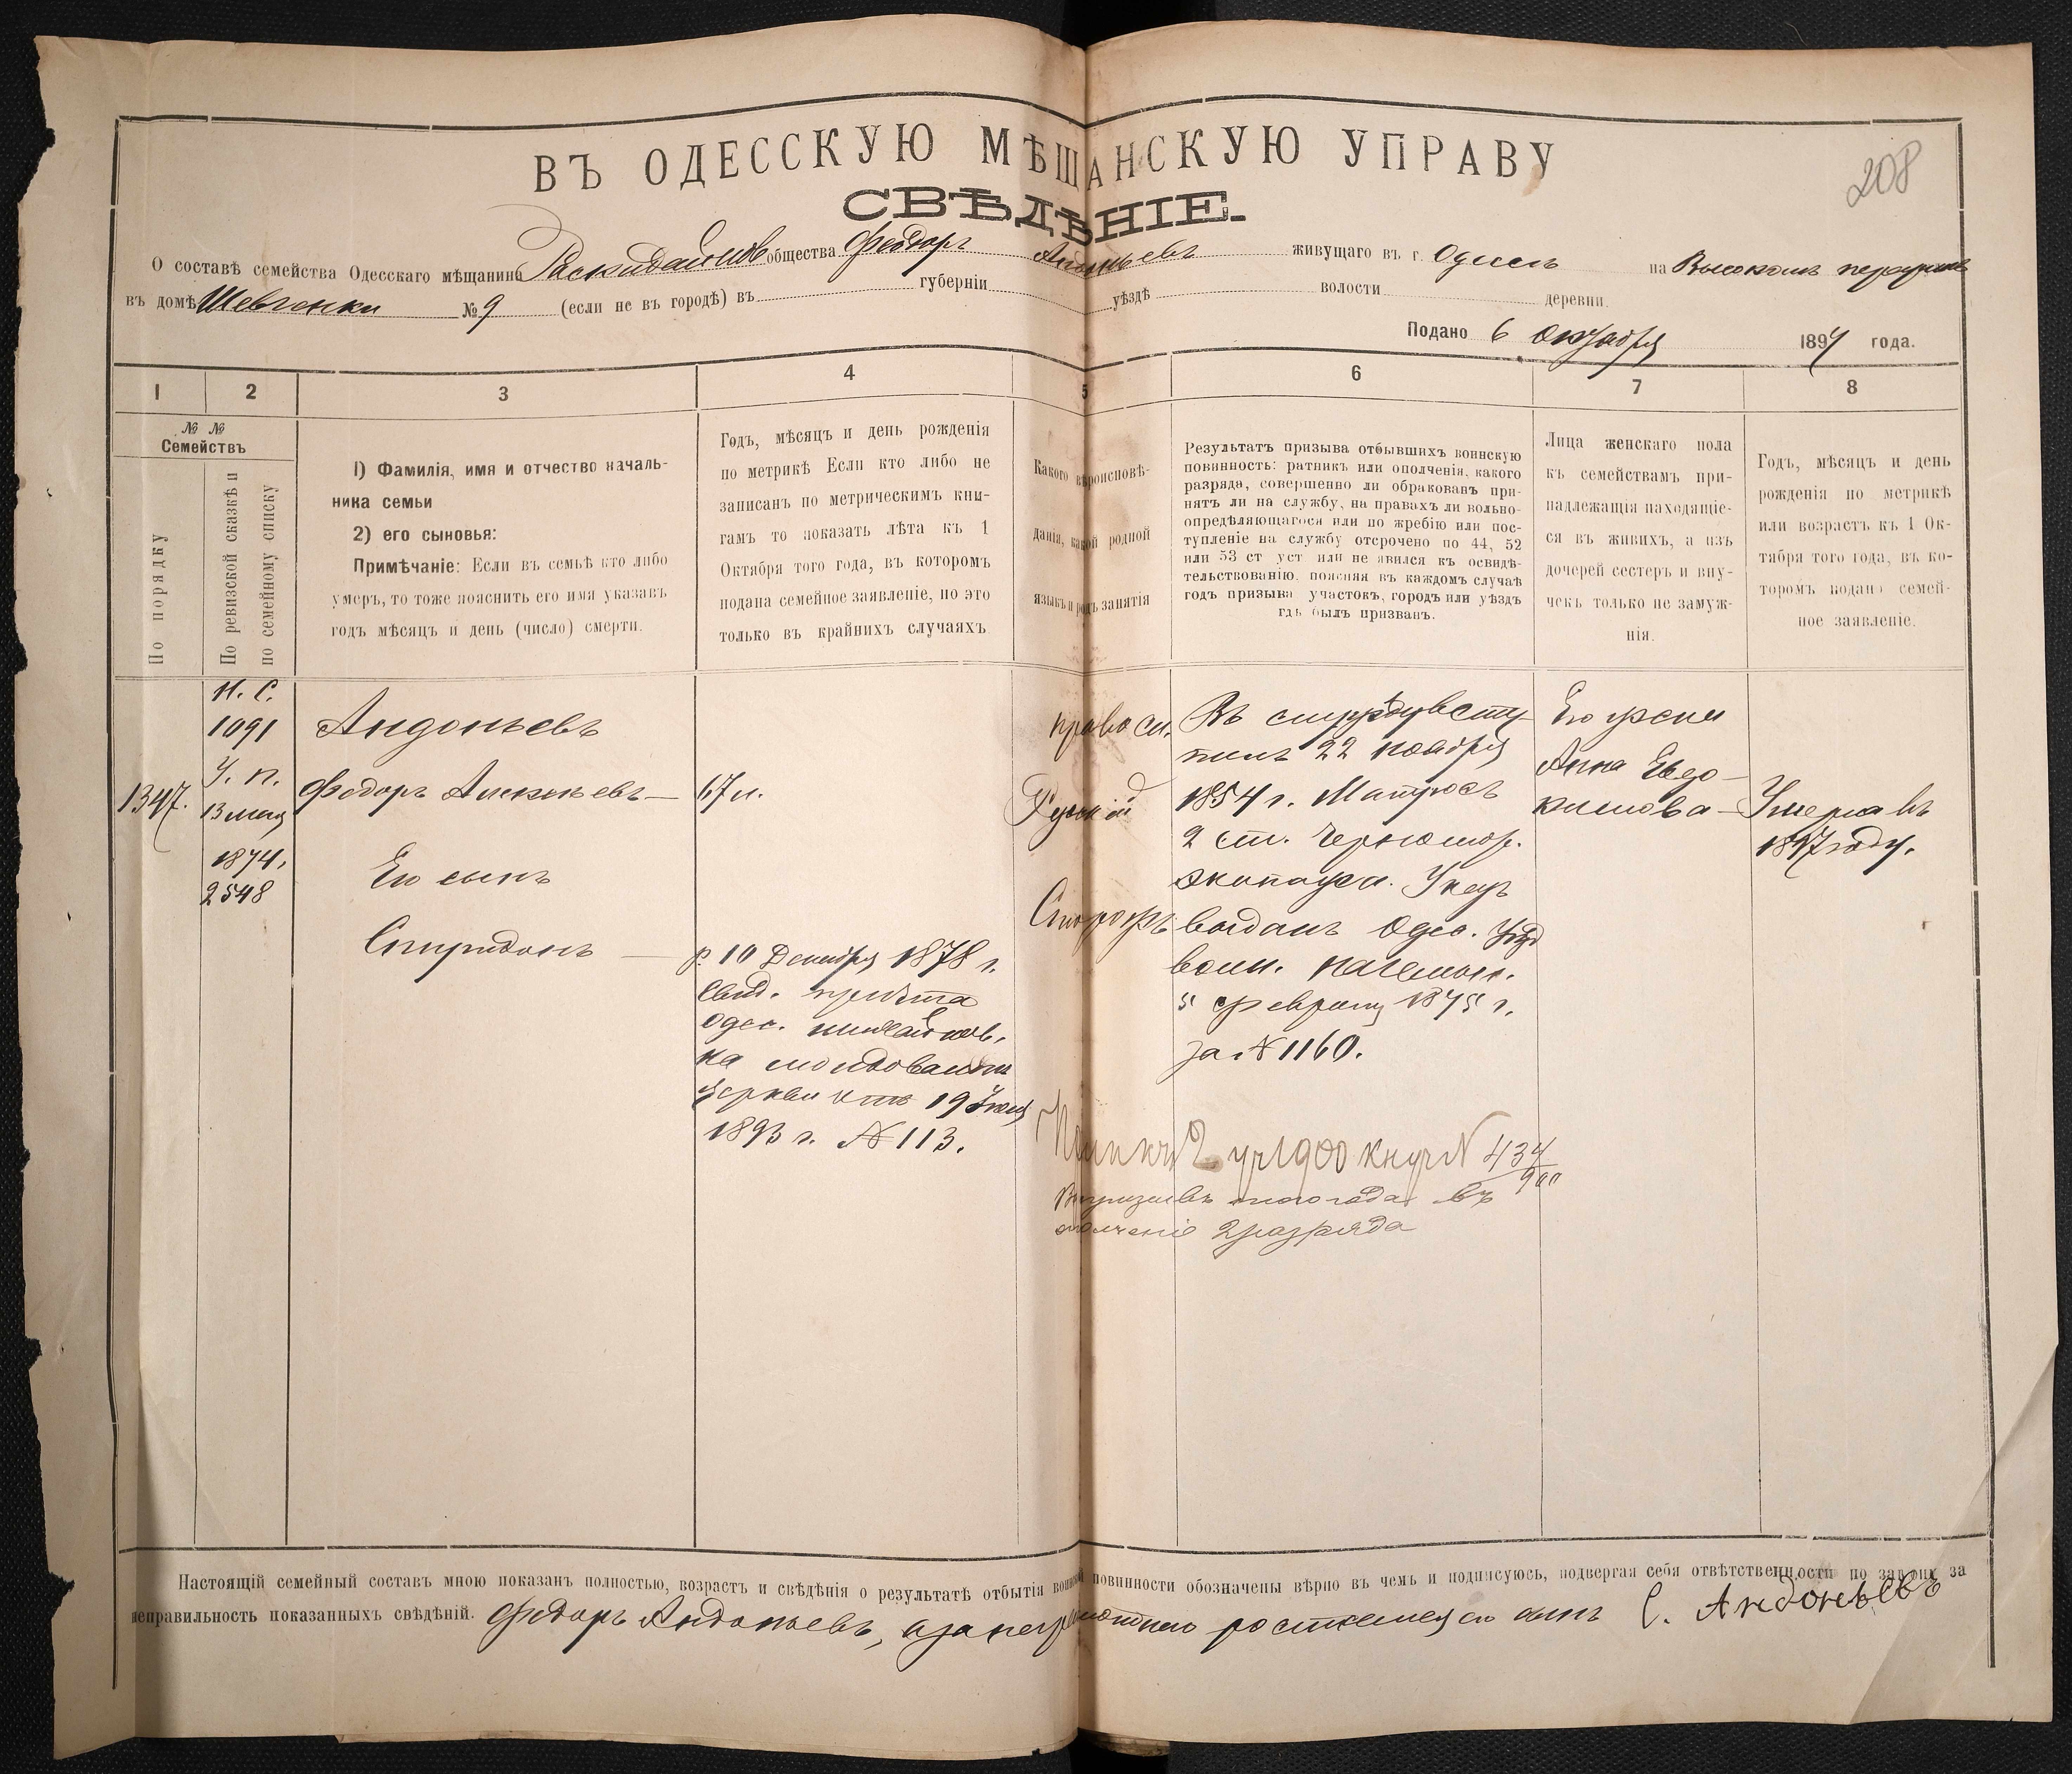 208
ВЪ ОДЕССКУЮ МѢЩАНСКУЮ УПРАВУ
СВѢДѢНІЕ.
О составѣ семейства Одесскаго мѣщанина общества Федоръ живущаго въ г. Одессѣ на Высокомъ
въ домѣ Шевченки № 9 (если не въ городѣ) въ губерніи уѣздѣ волости деревни.
Подано 6 Октября 1897 года.
1 2 3 4 5 6 7 8
№ № Семействъ
По порядку
По ревизской сказкѣ и
по семейному списку
1) Фамилія, имя и отчество началь-
ника семьи
2) его сыновья:
Примѣчаніе: Если въ семьѣ кто либо
умеръ, то тоже пояснить его имя указавъ
годъ мѣсяцъ и день (число) смерти.
Годъ, мѣсяцъ и день рожденія
по метрикѣ Если кто либо не
записанъ по метрическимъ кни-
гамъ то показать лѣта къ 1
Октября того года, въ которомъ
подана семейное заявленіе, но это
только въ крайнихъ случаяхъ
Какого вѣроисповѣ-
данія, какой родной
языкъ и родъ занятія
Результатъ призыва отбывшихъ воинскую
повинность: ратникъ или ополченія, какого
разряда, совершенно ли обракованъ при-
нятъ ли на службу, на правахъ ли вольно-
опредѣляющагося или по жребію или пос-
тупленіе на службу отсрочено по 44, 52
или 53 ст уст или не явился къ освидѣ-
тельствованію, поясняя въ каждомъ случаѣ
годъ призыва участокъ, городъ или уѣздъ
гдѣ былъ призванъ.
Лица женскаго пола
къ семействамъ при-
надлежащія находящіе-
ся въ живихъ, а изъ
дочерей сестеръ и вну-
чекъ только не замуж-
нія.
Годъ, мѣсяцъ и день
рожденія по метрикѣ
или возрастъ къ 1 Ок-
тября того года, въ ко-
торомъ подано семей-
ное заявленіе.
1347.
Н. С.
1091
У. п.
13 мая
1874.
2548
Андоньевъ
Федоръ —
Его сынъ
Спиридонъ —
67 л.
р. 10 Декабря 1878 г.
свид. причта
Одес.
на
церкви отъ 19 Іюня
1893 г. № 113.
правосл.
Русскій
Сторожъ
Въ службу всту
пилъ 22 ноября
1854 г. Матросъ
2 ст. Черномор.
экипажа. Указъ
выданъ Одес. Уѣзд
воин. начальн.
5 февраля 1875 г.
за № 1160.
2 уч 1900 № 434/900
въ
ополченіе 2 разряда
Его жена
Анна Евдо-
кимова —
Умерла въ
1897 году.
Настоящій семейный составъ мною показанъ полностью, возрастъ и свѣдѣнія о результатѣ отбытія воинской повинности обозначены вѣрно въ чемъ и подписуюсь, подвергая себя отвѣтственности по закону за
неправильность показанныхъ свѣдѣній. Федоръ Андоньевъ, а за неграмотнаго сынъ С. Андоньевъ